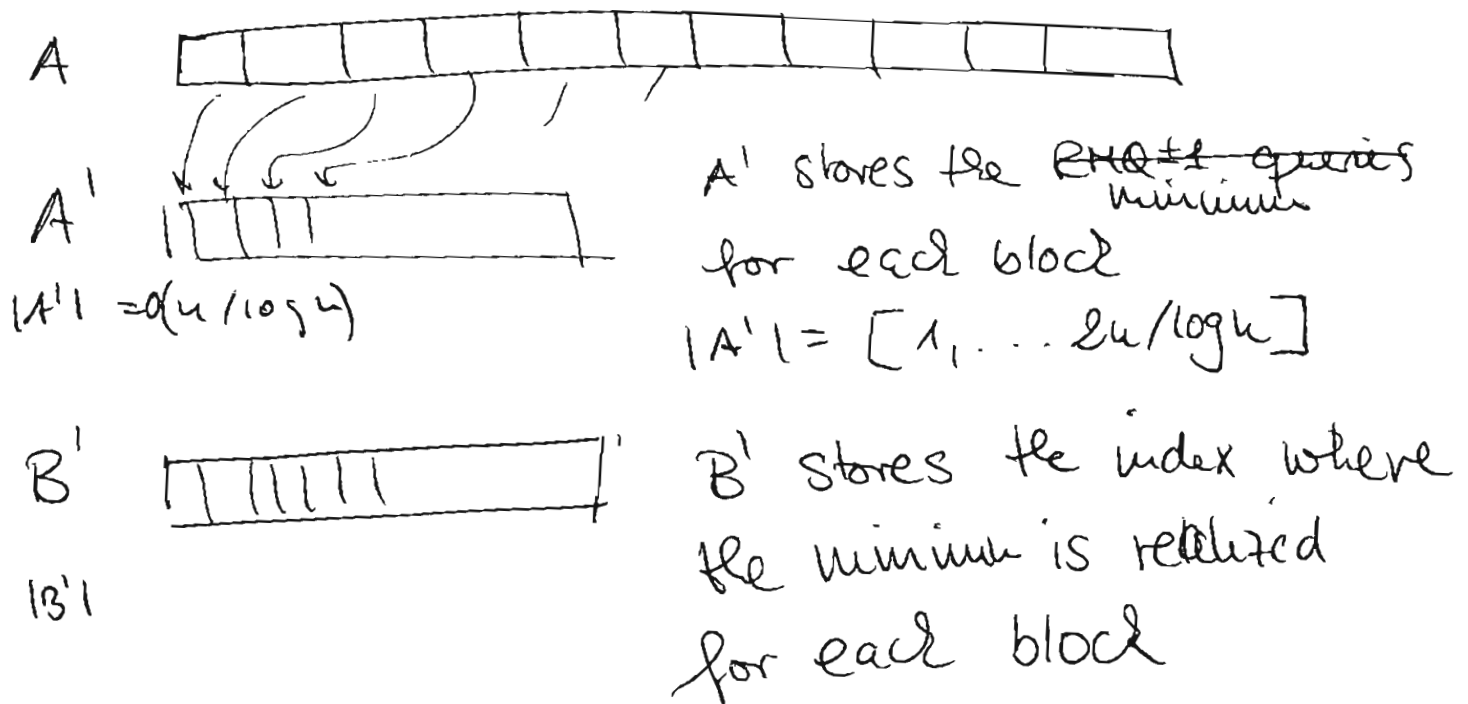 A
A' stores the RMQ±1 queries
minimum
A'
for each block
|A'| = O(n/log n)
|A'| = [1, ... 2n/log n]
B'
B' stores the index where
the minimum is realized
|B'|
for each block